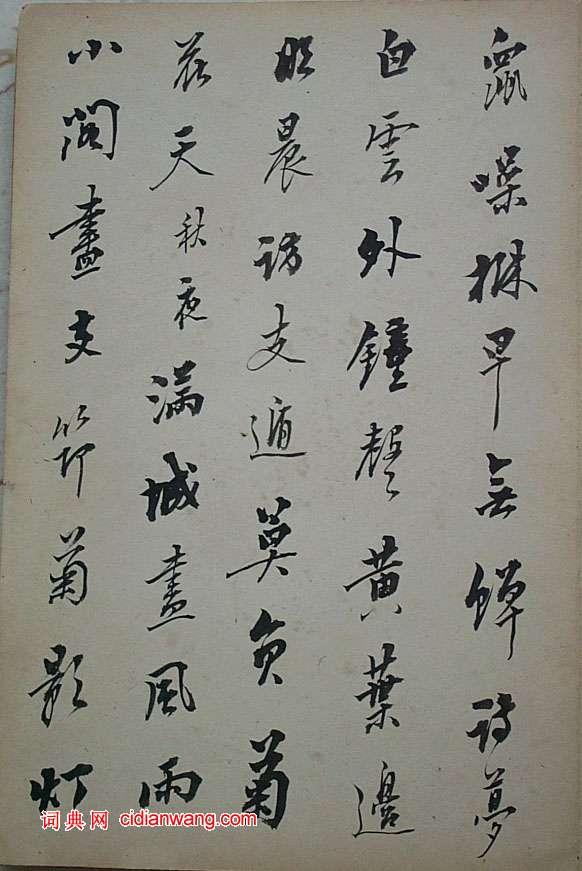 鼠噪早無蟬詩夢
白雲外鐘聲黃葉邊
明晨訪支遁莫負菊
花天秋夜滿城盡風雨
小閣畫支筇菊影灯
词典网 cidianwang.com